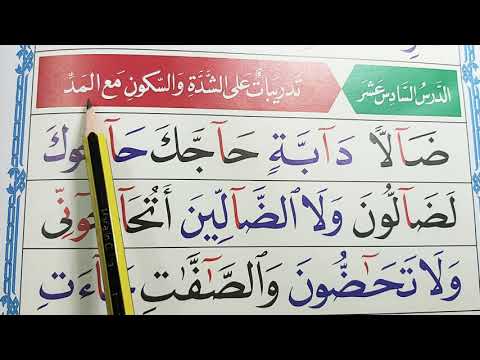 الدَّرْسُ السَّادِسَ عَشَرَ
تَدْرِيبَاتٌ عَلَى الشَّدَّةِ وَالسُّكُونِ مَعَ الْمَدِّ
ضَآلًّا دَآبَّةٍ حَآجَّكَ
لَضَآلُّونَ وَلَا ٱلضَّآلِّينَ
وَلَا تَحَٰٓضُّونَ وَٱلصَّٰٓفَّٰتِ